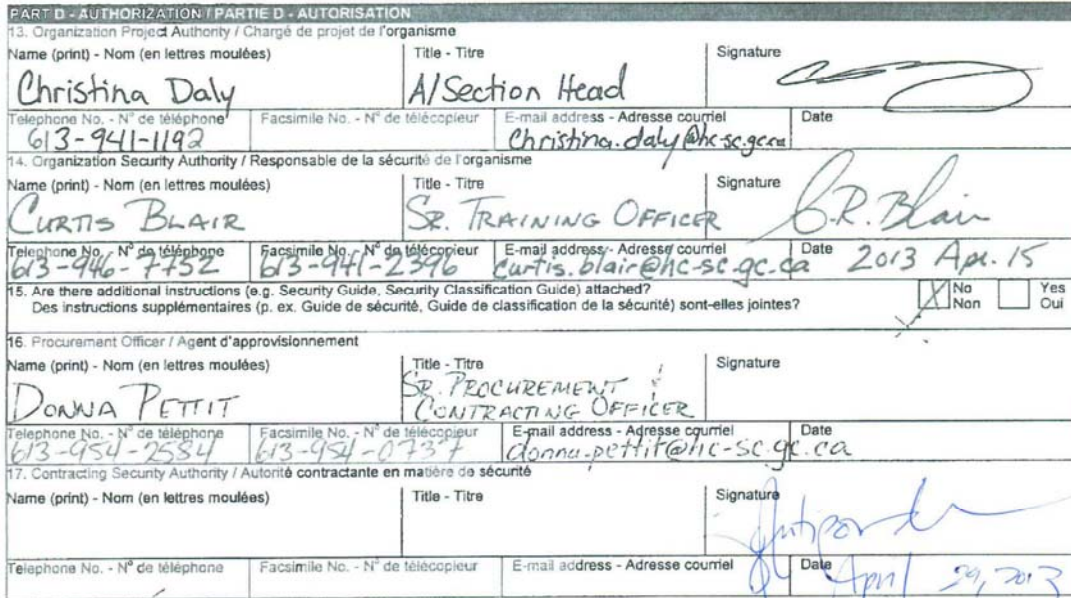 PART D - AUTHORIZATION / PARTIE D - AUTORISATION
13. Organization Project Authority / Chargé de projet de l'organisme
Name (print) - Nom (en lettres moulées) Title - Titre Signature
Christina Daly A/Section Head
Telephone No. - N° de téléphone Facsimile No. - N° de télécopieur E-mail address - Adresse courriel Date
613-941-1192 Christina.daly@hc-sc.gc.ca
14. Organization Security Authority / Responsable de la sécurité de l'organisme
Name (print) - Nom (en lettres moulées) Title - Titre Signature
CURTIS BLAIR SR. TRAINING OFFICER C.R. Blair
Telephone No. - N° de téléphone Facsimile No. - N° de télécopieur E-mail address - Adresse courriel Date
613-946-7752 613-941-2396 curtis.blair@hc-sc.gc.ca 2013 Apr. 15
15. Are there additional instructions (e.g. Security Guide, Security Classification Guide) attached? No Yes
Des instructions supplémentaires (p. ex. Guide de sécurité, Guide de classification de la sécurité) sont-elles jointes? Non Oui
16. Procurement Officer / Agent d'approvisionnement
Name (print) - Nom (en lettres moulées) Title - Titre Signature
DONNA PETTIT SR. PROCUREMENT &
CONTRACTING OFFICER
Telephone No. - N° de téléphone Facsimile No. - N° de télécopieur E-mail address - Adresse courriel Date
613-954-2584 613-954-0737 donna.pettit@hc-sc.gc.ca
17. Contracting Security Authority / Autorité contractante en matière de sécurité
Name (print) - Nom (en lettres moulées) Title - Titre Signature
Telephone No. - N° de téléphone Facsimile No. - N° de télécopieur E-mail address - Adresse courriel Date
April 29, 2013